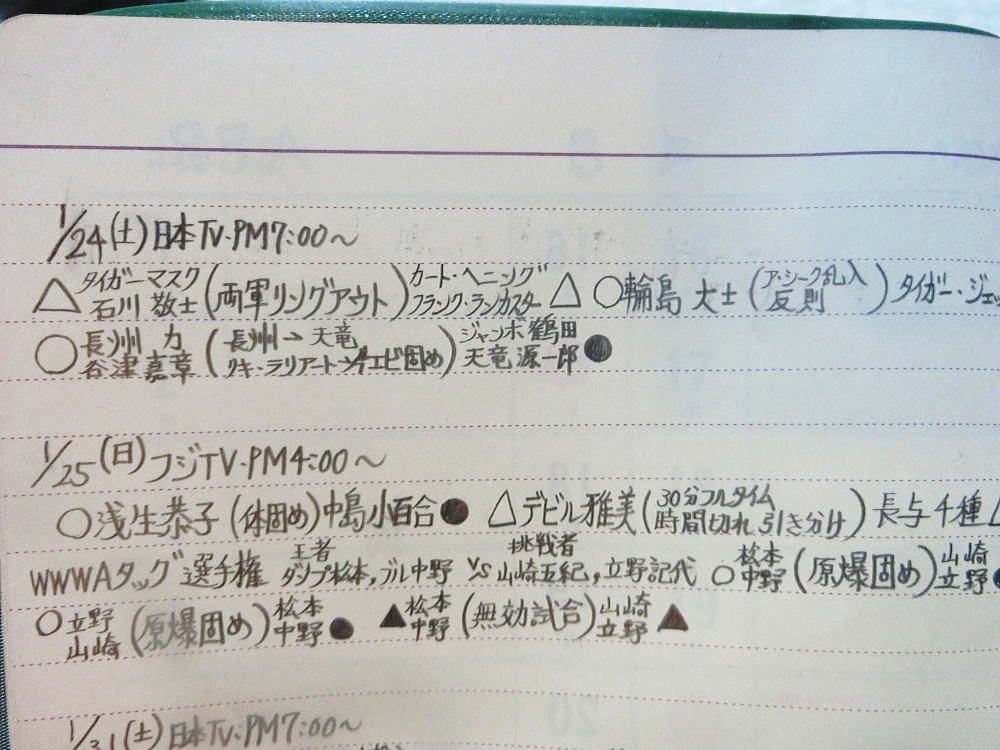 1/24(土)日本TV・PM7:00～
△タイガーマスク 石川 敬士(両軍リングアウト)カート・ヘニング フランク・ランカスター△ ○輪島 大士(ア・シーク乱入 反則)タイガー・ジェッ
○長州 力 谷津嘉章(長州→天竜 リキ・ラリアート→エビ固め)ジャンボ鶴田 天竜源一郎●
1/25(日)フジTV・PM4:00～
○浅生恭子(体固め)中島小百合● △デビル雅美(30分フルタイム 時間切れ引き分け)長与千種△
WWWAタッグ選手権 王者 ダンプ松本,ブル中野 VS 挑戦者 山崎五紀,立野記代 ○松本 中野(原爆固め)山崎 立野●
○立野 山崎(原爆固め)松本 中野● ▲松本 中野(無効試合)山崎 立野▲
1/31(土)日本TV・PM7:00～